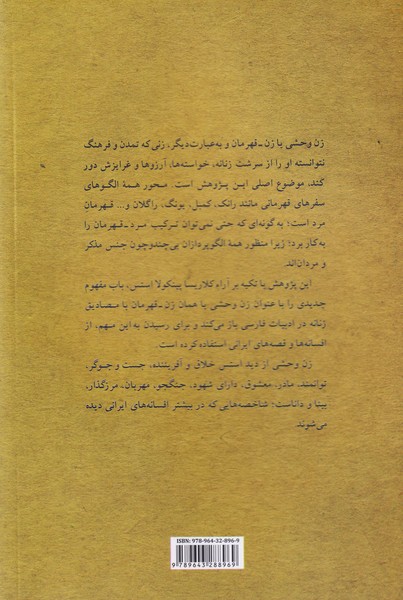 زن وحشی یا زن ـ قهرمان و به‌عبارت‌دیگر، زنی که تمدن و فرهنگ
نتوانسته او را از سرشت زنانه، خواسته‌ها، آرزوها و غرایزش دور
کند، موضوع اصلی این پژوهش است. محور همهٔ الگوهای
سفرهای قهرمانی مانند رانک، کمبل، یونگ، راگلان و... قهرمانِ
مرد است؛ به‌گونه‌ای که حتی نمی‌توان ترکیب مرد ـ قهرمان را
به‌کار برد؛ زیرا منظور همهٔ الگوپردازان بی‌چندوچون جنس مذکر
و مردان‌اند.
این پژوهش با تکیه بر آراء کلاریسا پینکولا استس، باب مفهوم
جدیدی را با عنوان زن وحشی یا همان زن ـ قهرمان با مصادیق
زنانه در ادبیات فارسی باز می‌کند و برای رسیدن به این مهم، از
افسانه‌ها و قصه‌های ایرانی استفاده کرده است.
زن وحشی از دید استس خلاق و آفریننده، جست و جوگر،
توانمند، مادر، معشوق، دارای شهود، جنگجو، مهربان، مرزگذار،
بینا و داناست؛ شاخصه‌هایی که در بیشتر افسانه‌های ایرانی دیده
می‌شوند.
ISBN: 978-964-32-896-9
9 789643 288969